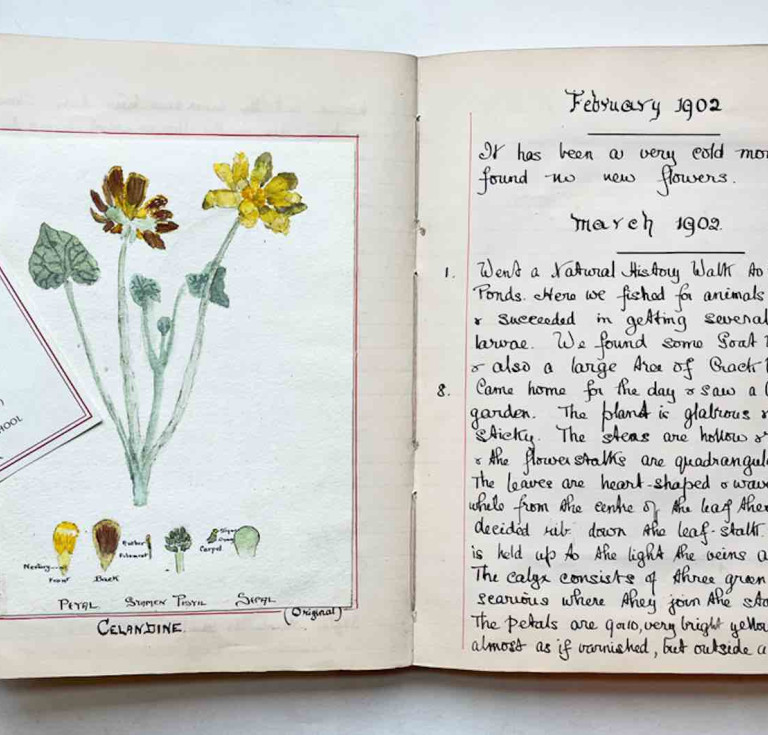 HOOL
Nectary
Front
Back
Anther
Filament
Stigma
Ovary
Carpel
PETAL STAMEN PISTIL SEPAL
(Original)
CELANDINE.
February 1902
It has been a very cold mon
found no new flowers.
March 1902.
1. Went a Natural History Walk to
Ponds. Here we fished for animals
& succeeded in getting several
larvae. We found some Goat
& also a large tree of Crack
8. Came home for the day & saw a
garden. The plant is glabrous &
sticky. The stems are hollow &
& the flowerstalks are quadrangul
The leaves are heart-shaped & wav
while from the centre of the leaf ther
decided rib down the leaf-stalk.
is held up to the light the veins a
The calyx consists of three green
scarious where they join the sta
The petals are 9 or 10, very bright yello
almost as if varnished, but outside a